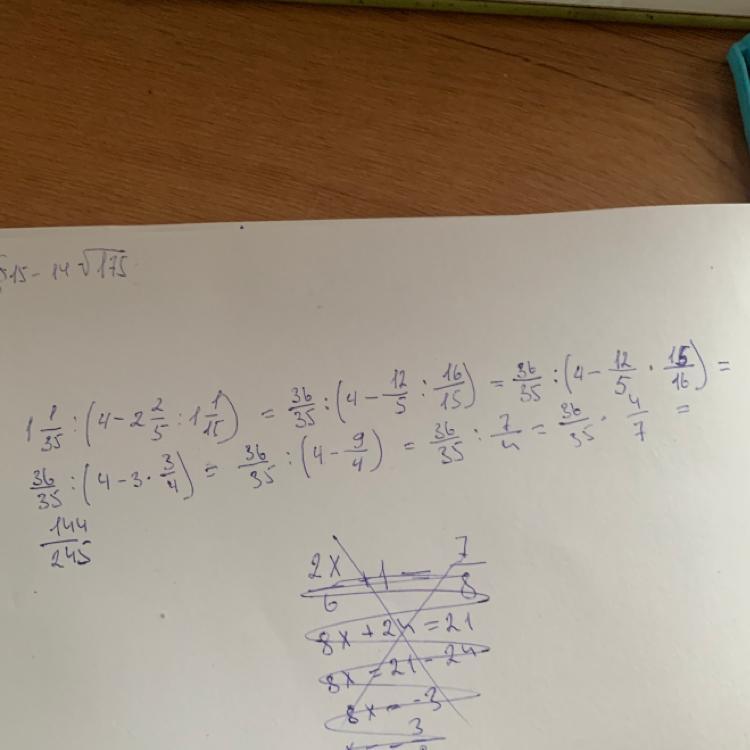 15 - 14 √175
1 1/35 : (4 - 2 2/5 : 1 1/15) = 36/35 : (4 - 12/5 : 16/15) = 36/35 : (4 - 12/5 · 15/16) =
36/35 : (4 - 3 · 3/4) = 36/35 : (4 - 9/4) = 36/35 : 7/4 = 36/35 · 4/7 =
144/245
2x/6 + 1 = 7/8
8x + 24 = 21
8x = 21 - 24
8x = -3
3